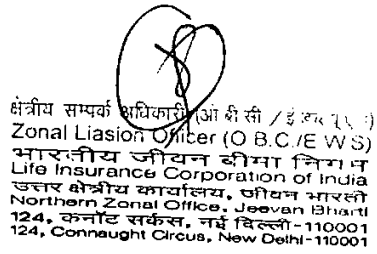 क्षेत्रीय सम्पर्क अधिकारी (ओ बी सी /
Zonal Liasion Officer (O B.C./E W S)
भारतीय जीवन बीमा निगम
Life Insurance Corporation of India
उत्तर क्षेत्रीय कार्यालय, जीवन भारती
Northern Zonal Office, Jeevan Bharti
124, कनॉट सर्कस, नई दिल्ली-110001
124, Connaught Circus, New Delhi-110001